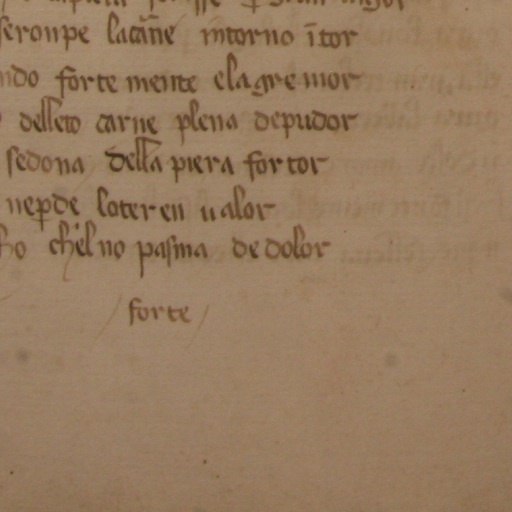 seronpe lacar̃e intorno ĩtor
ndo forte mente elagremor
delleto carne plena depudor
sedona della piera fortor
neꝑde loteren ualor
ho chel no pasma de dolor
forte